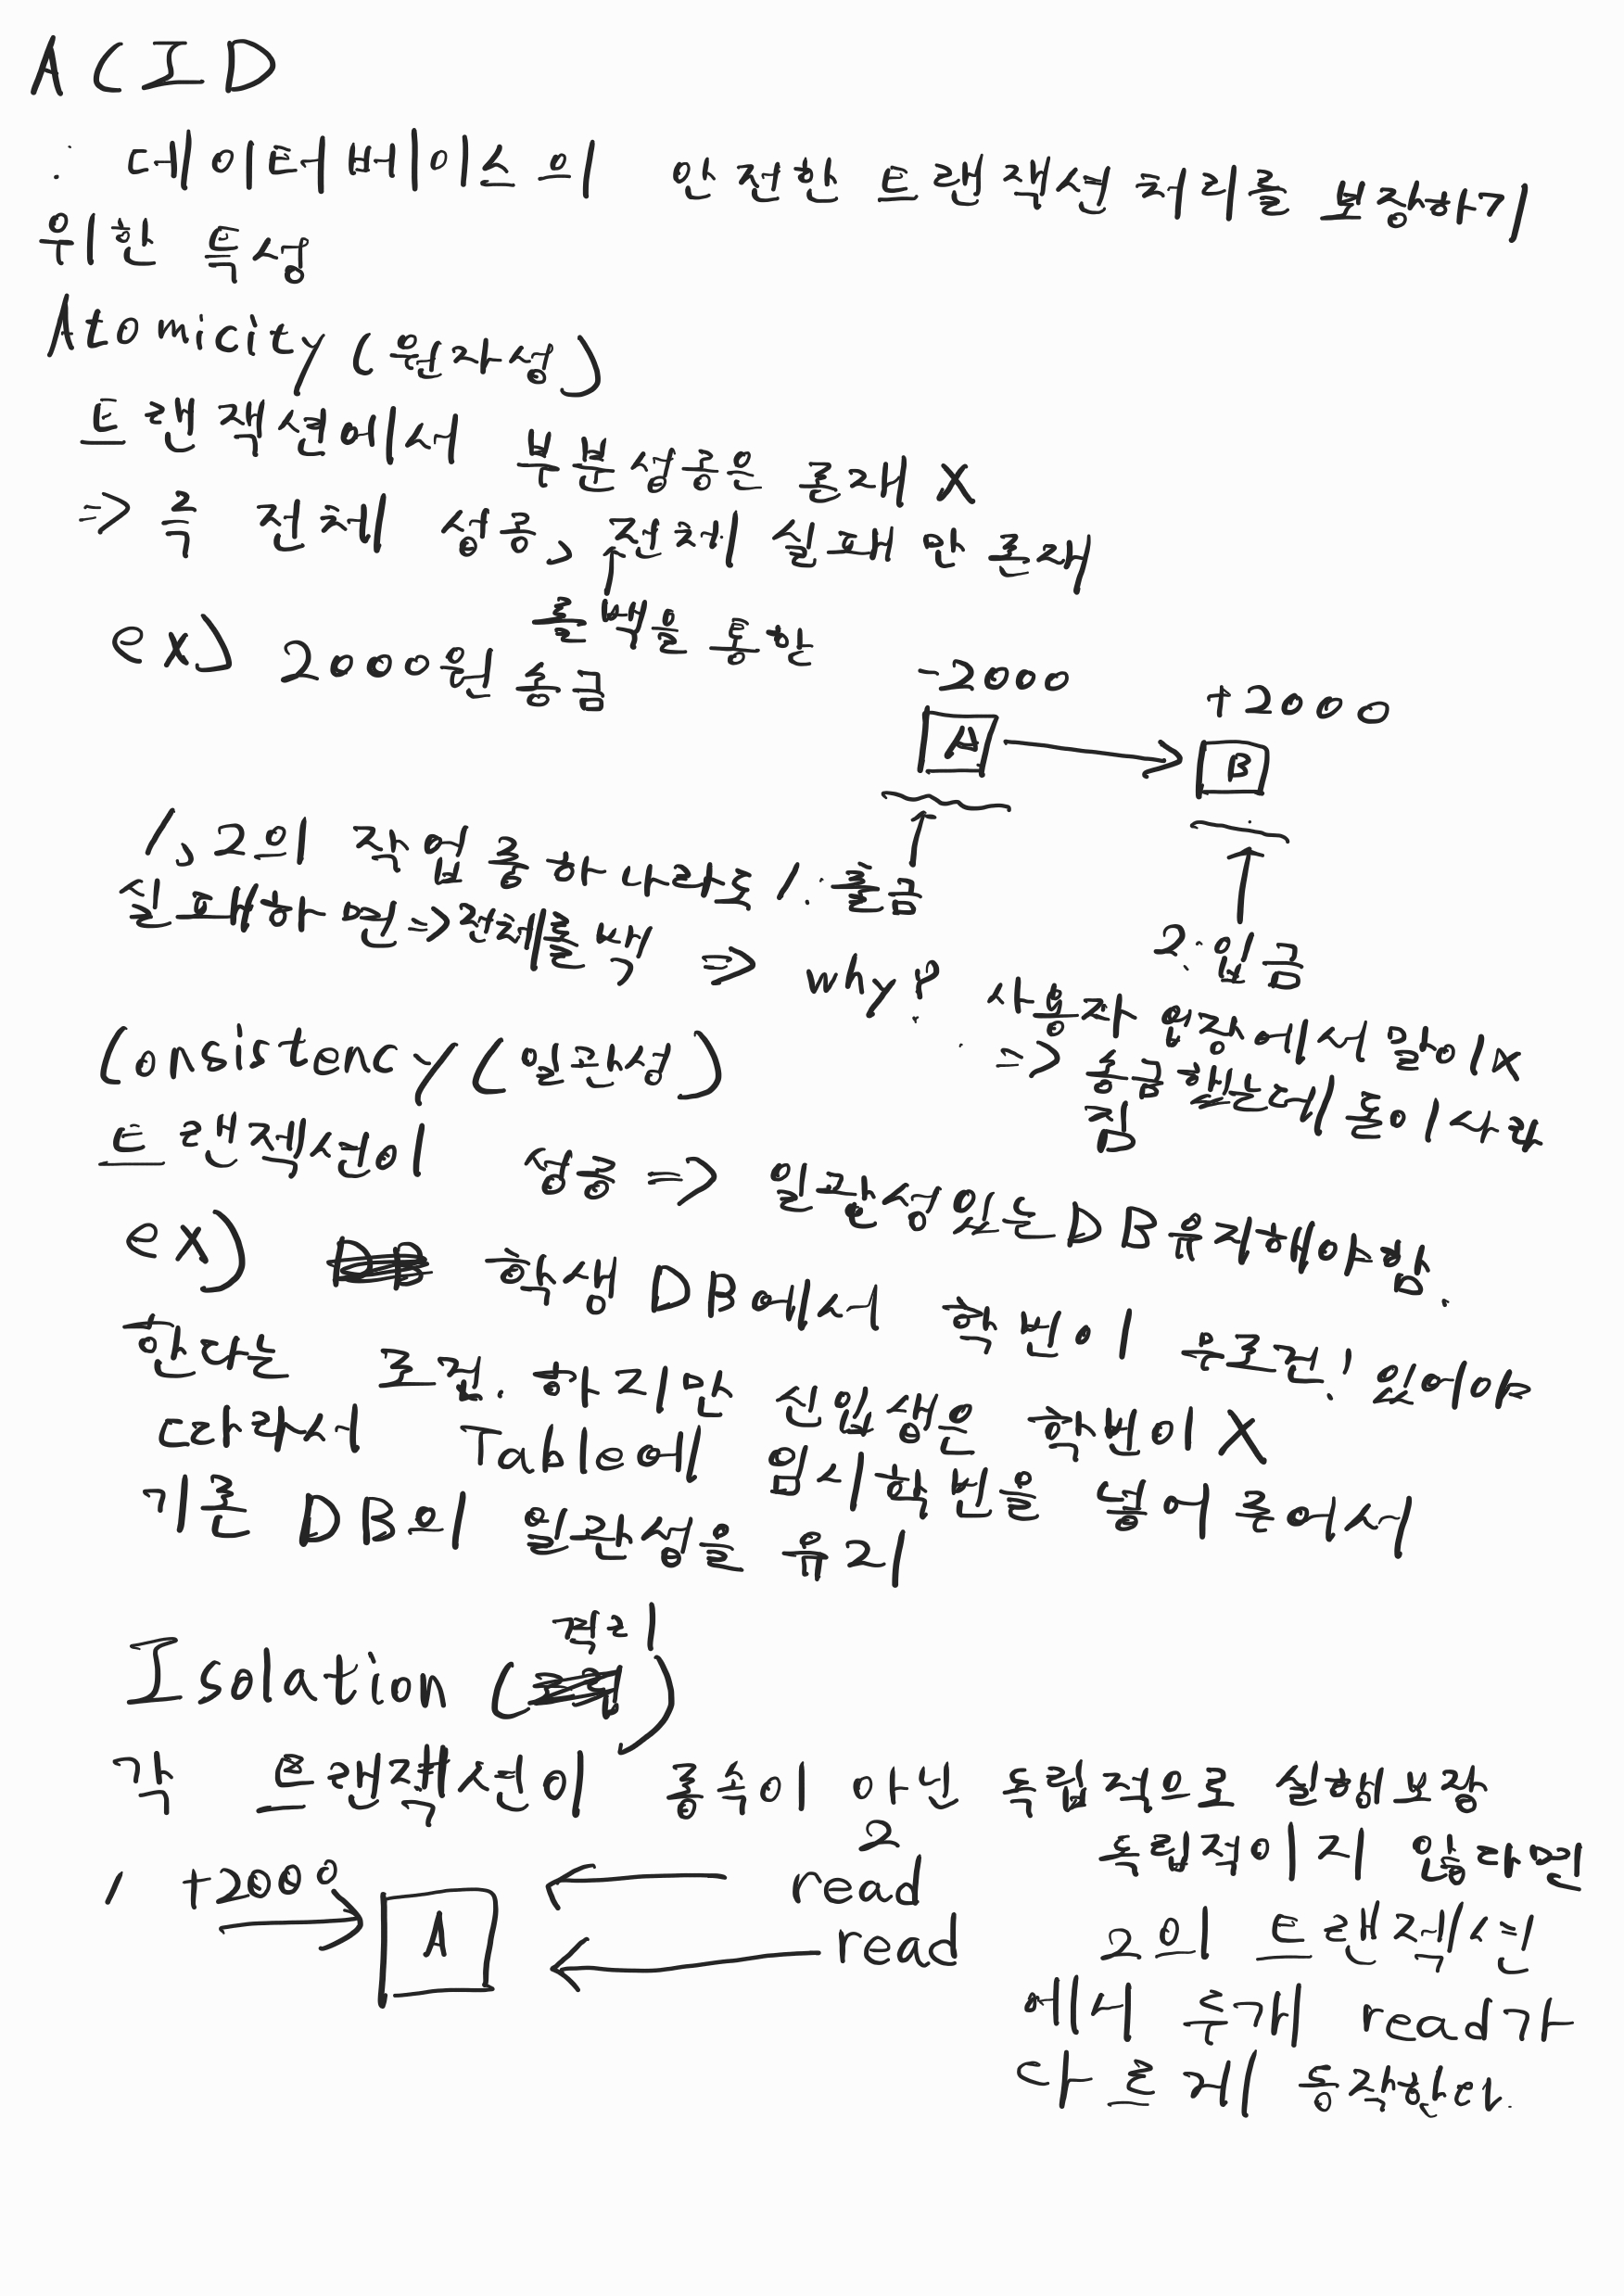 ACID
: 데이터베이스의 안전한 트랜잭션 처리를 보장하기
위한 특성
Atomicity (원자성)
트랜잭션에서 부분성공은 존재 X
=> 즉 전체 성공, 전체 실패만 존재
롤백을 통한
ex) 2000원 송금
-2000
+2000
A
B
1,2의 작업중 하나라도
실패하면 => 전체롤백
1. 출금
2. 입금
=> why? 사용자 입장에서 말이 X
=> 송금했는데 돈이 사라
짐
Consistency (일관성)
트랜잭션이 성공 => 일관성있는 DB유지해야함.
ex) 학생 DB에서 학번이 무조건! 있어야
한다는 조건. 하지만 신입생은 학번이 X
따라서 Table에 임시학번을 넣어주어서
기존 DB의 일관성을 유지
Isolation (격리)
각 트랜잭션이 종속이 아닌 독립적으로 실행해보장
1 +2000
A
2
read
read
독립적이지 않라면
2의 트랜잭션
에서 두개 read가
다르게 동작한다.